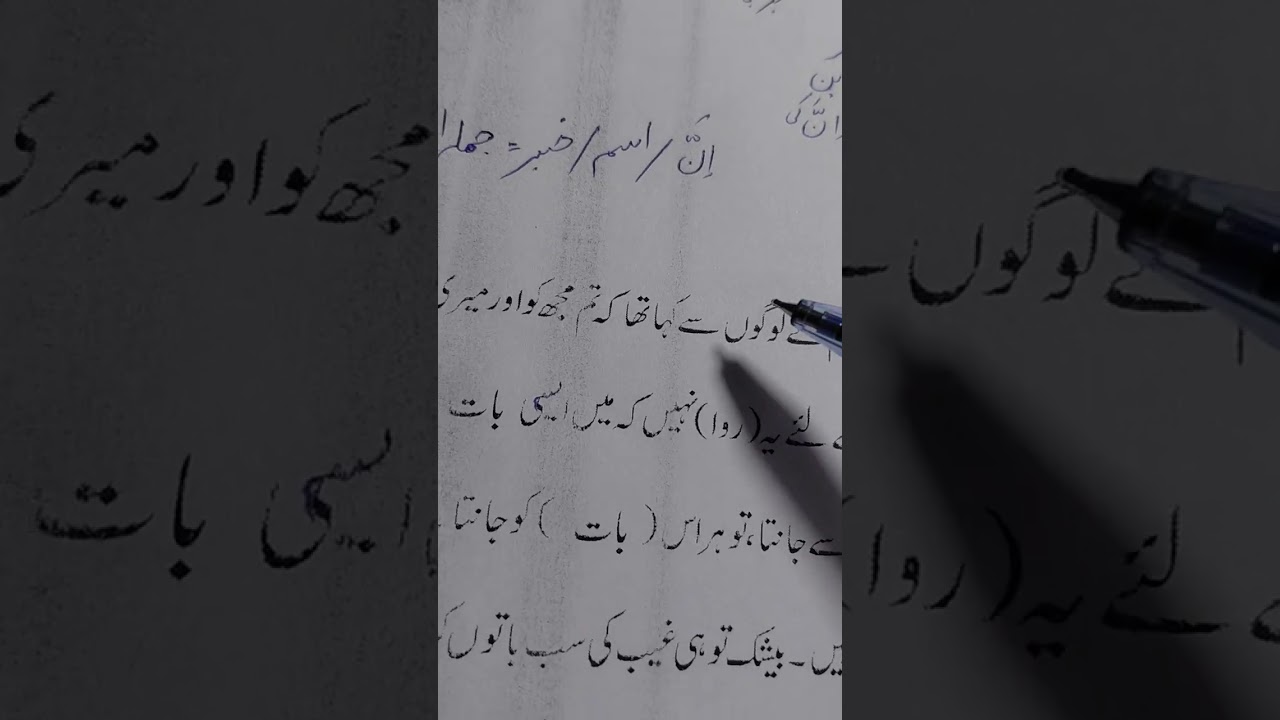 اِنَّ / اسم / خبر =
اِنَّ کی
لوگوں سے کہا تھا کہ تم مجھ کو اور میری
لئے یہ (روا) نہیں کہ میں ایسی بات
سے جانتا، تو ہر اس ( بات ) کو جانتا
بیشک تو ہی غیب کی سب باتوں